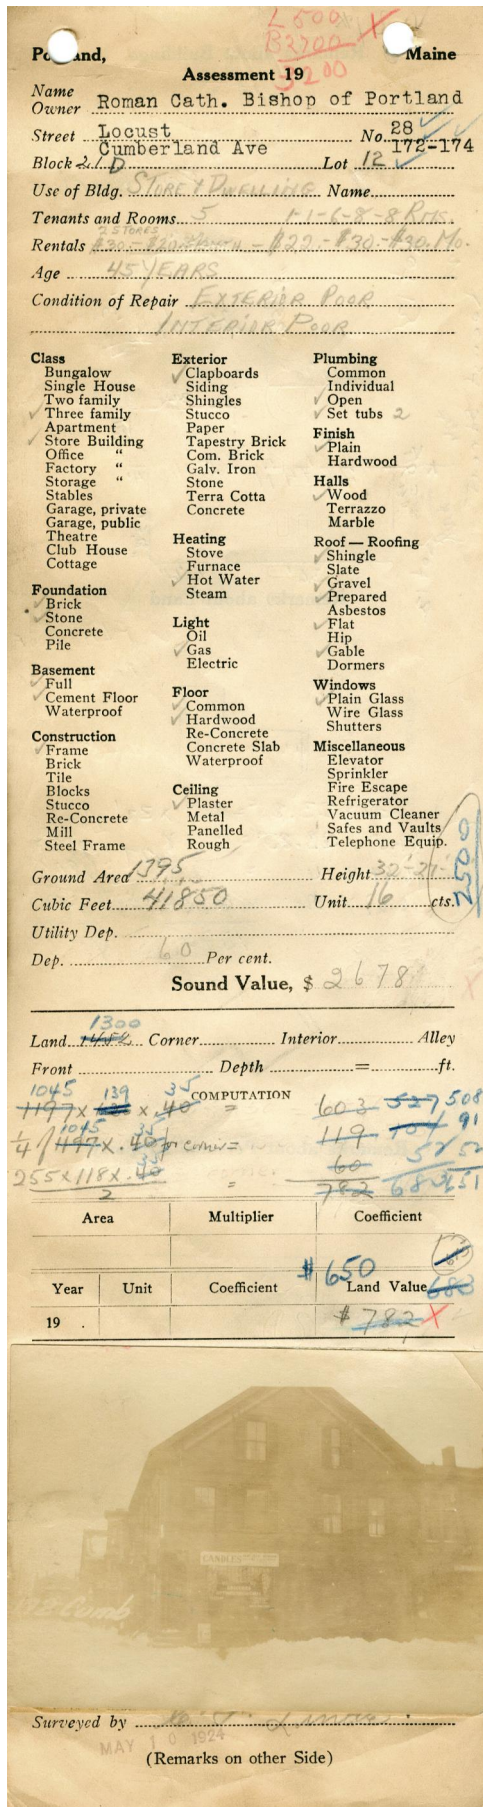 L 500
B 2700
3200
Portland, Maine
Assessment 19
Name
Owner Roman Cath. Bishop of Portland
Street Locust No. 28
Cumberland Ave 172-174
Block 21 D Lot 12
Use of Bldg. STORE & DWELLING Name
Tenants and Rooms 5 1-1-6-8-8 RMS.
2 STORES
Rentals $30-$20 - $22-$30-$30. Mo.
Age 45 YEARS
Condition of Repair EXTERIOR POOR
INTERIOR POOR
Class
Bungalow
Single House
Two family
✓ Three family
Apartment
✓ Store Building
Office "
Factory "
Storage "
Stables
Garage, private
Garage, public
Theatre
Club House
Cottage
Foundation
✓ Brick
✓ Stone
Concrete
Pile
Basement
✓ Full
✓ Cement Floor
Waterproof
Construction
✓ Frame
Brick
Tile
Blocks
Stucco
Re-Concrete
Mill
Steel Frame
Exterior
✓ Clapboards
Siding
Shingles
Stucco
Paper
Tapestry Brick
Com. Brick
Galv. Iron
Stone
Terra Cotta
Concrete
Heating
Stove
Furnace
✓ Hot Water
Steam
Light
Oil
✓ Gas
Electric
Floor
✓ Common
✓ Hardwood
Re-Concrete
Concrete Slab
Waterproof
Ceiling
✓ Plaster
Metal
Panelled
Rough
Plumbing
Common
Individual
✓ Open
✓ Set tubs 2
Finish
✓ Plain
Hardwood
Halls
✓ Wood
Terrazzo
Marble
Roof — Roofing
✓ Shingle
Slate
✓ Gravel
✓ Prepared
Asbestos
✓ Flat
Hip
✓ Gable
Dormers
Windows
✓ Plain Glass
Wire Glass
Shutters
Miscellaneous
Elevator
Sprinkler
Fire Escape
Refrigerator
Vacuum Cleaner
Safes and Vaults
Telephone Equip.
2500
Ground Area 1395 Height 32'-27'
Cubic Feet 41850 Unit 16 cts.
Utility Dep.
Dep. 60 Per cent.
Sound Value, $ 2678
1300
Land 1452 Corner Interior Alley
Front Depth = ft.
COMPUTATION
1045 139 35
1197 x x .40 = 603 527 508
1045 35
1/4 / 1197 x .40 / for corner = 119 104 91
35
255 x 118 x .40 = 60 52 52
2
782 683 651
Area Multiplier Coefficient
$ 650
Year Unit Coefficient Land Value 683
19 . $ 782 X
CANDIES
172 Cumb
Surveyed by
MAY 10 1924
(Remarks on other Side)